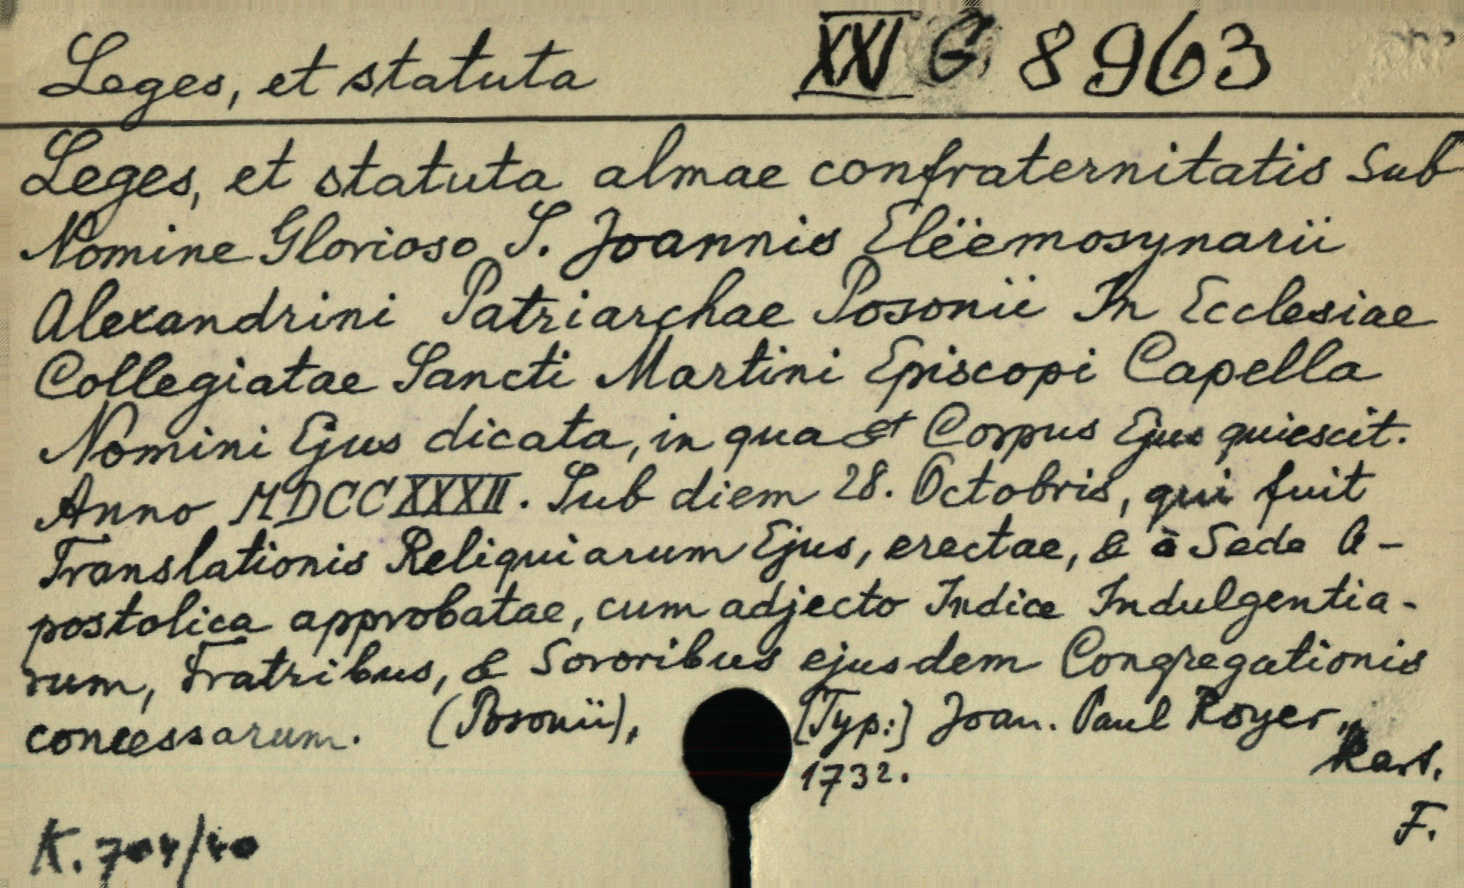 Leges, et statuta XXI G. 8963
Leges, et statuta almae confraternitatis Sub
Nomine Glorioso S. Joannis Elëemosynarii
Alexandrini Patriarchae Posonii In Ecclesiae
Collegiatae Sancti Martini Episcopi Capella
Nomini Ejus dicata, in qua et Corpus Ejus quiescit.
Anno MDCCXXXII. Sub diem 28. Octobris, qui fuit
Translationis Reliquiarum Ejus, erectae, & à Sede A-
postolica approbatae, cum adjecto Indice Indulgentia-
rum, Fratribus, & Sororibus ejusdem Congregationis
concessarum. (Posonii), [Typ:] Joan. Paul Royer,
1732. kart.
F.
K. 704/40